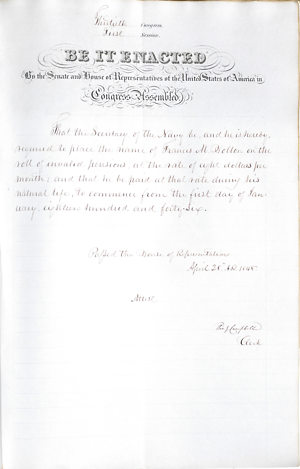 Thirtieth Congress
First Session
BE IT ENACTED
By the Senate and House of Representatives of the United States of America in
Congress Assembled,
That the Secretary of the Navy be, and he is hereby
required to place the name of Francis M. Holton on the
roll of invalid pensions, at the rate of eight dollars per
month; and that he be paid at that rate during his
natural life, to commence from the first day of Jan-
uary, eighteen hundred and forty-six.
Passed the House of Representatives
April 28th A.D. 1848.
Attest,
Campbell
Clerk